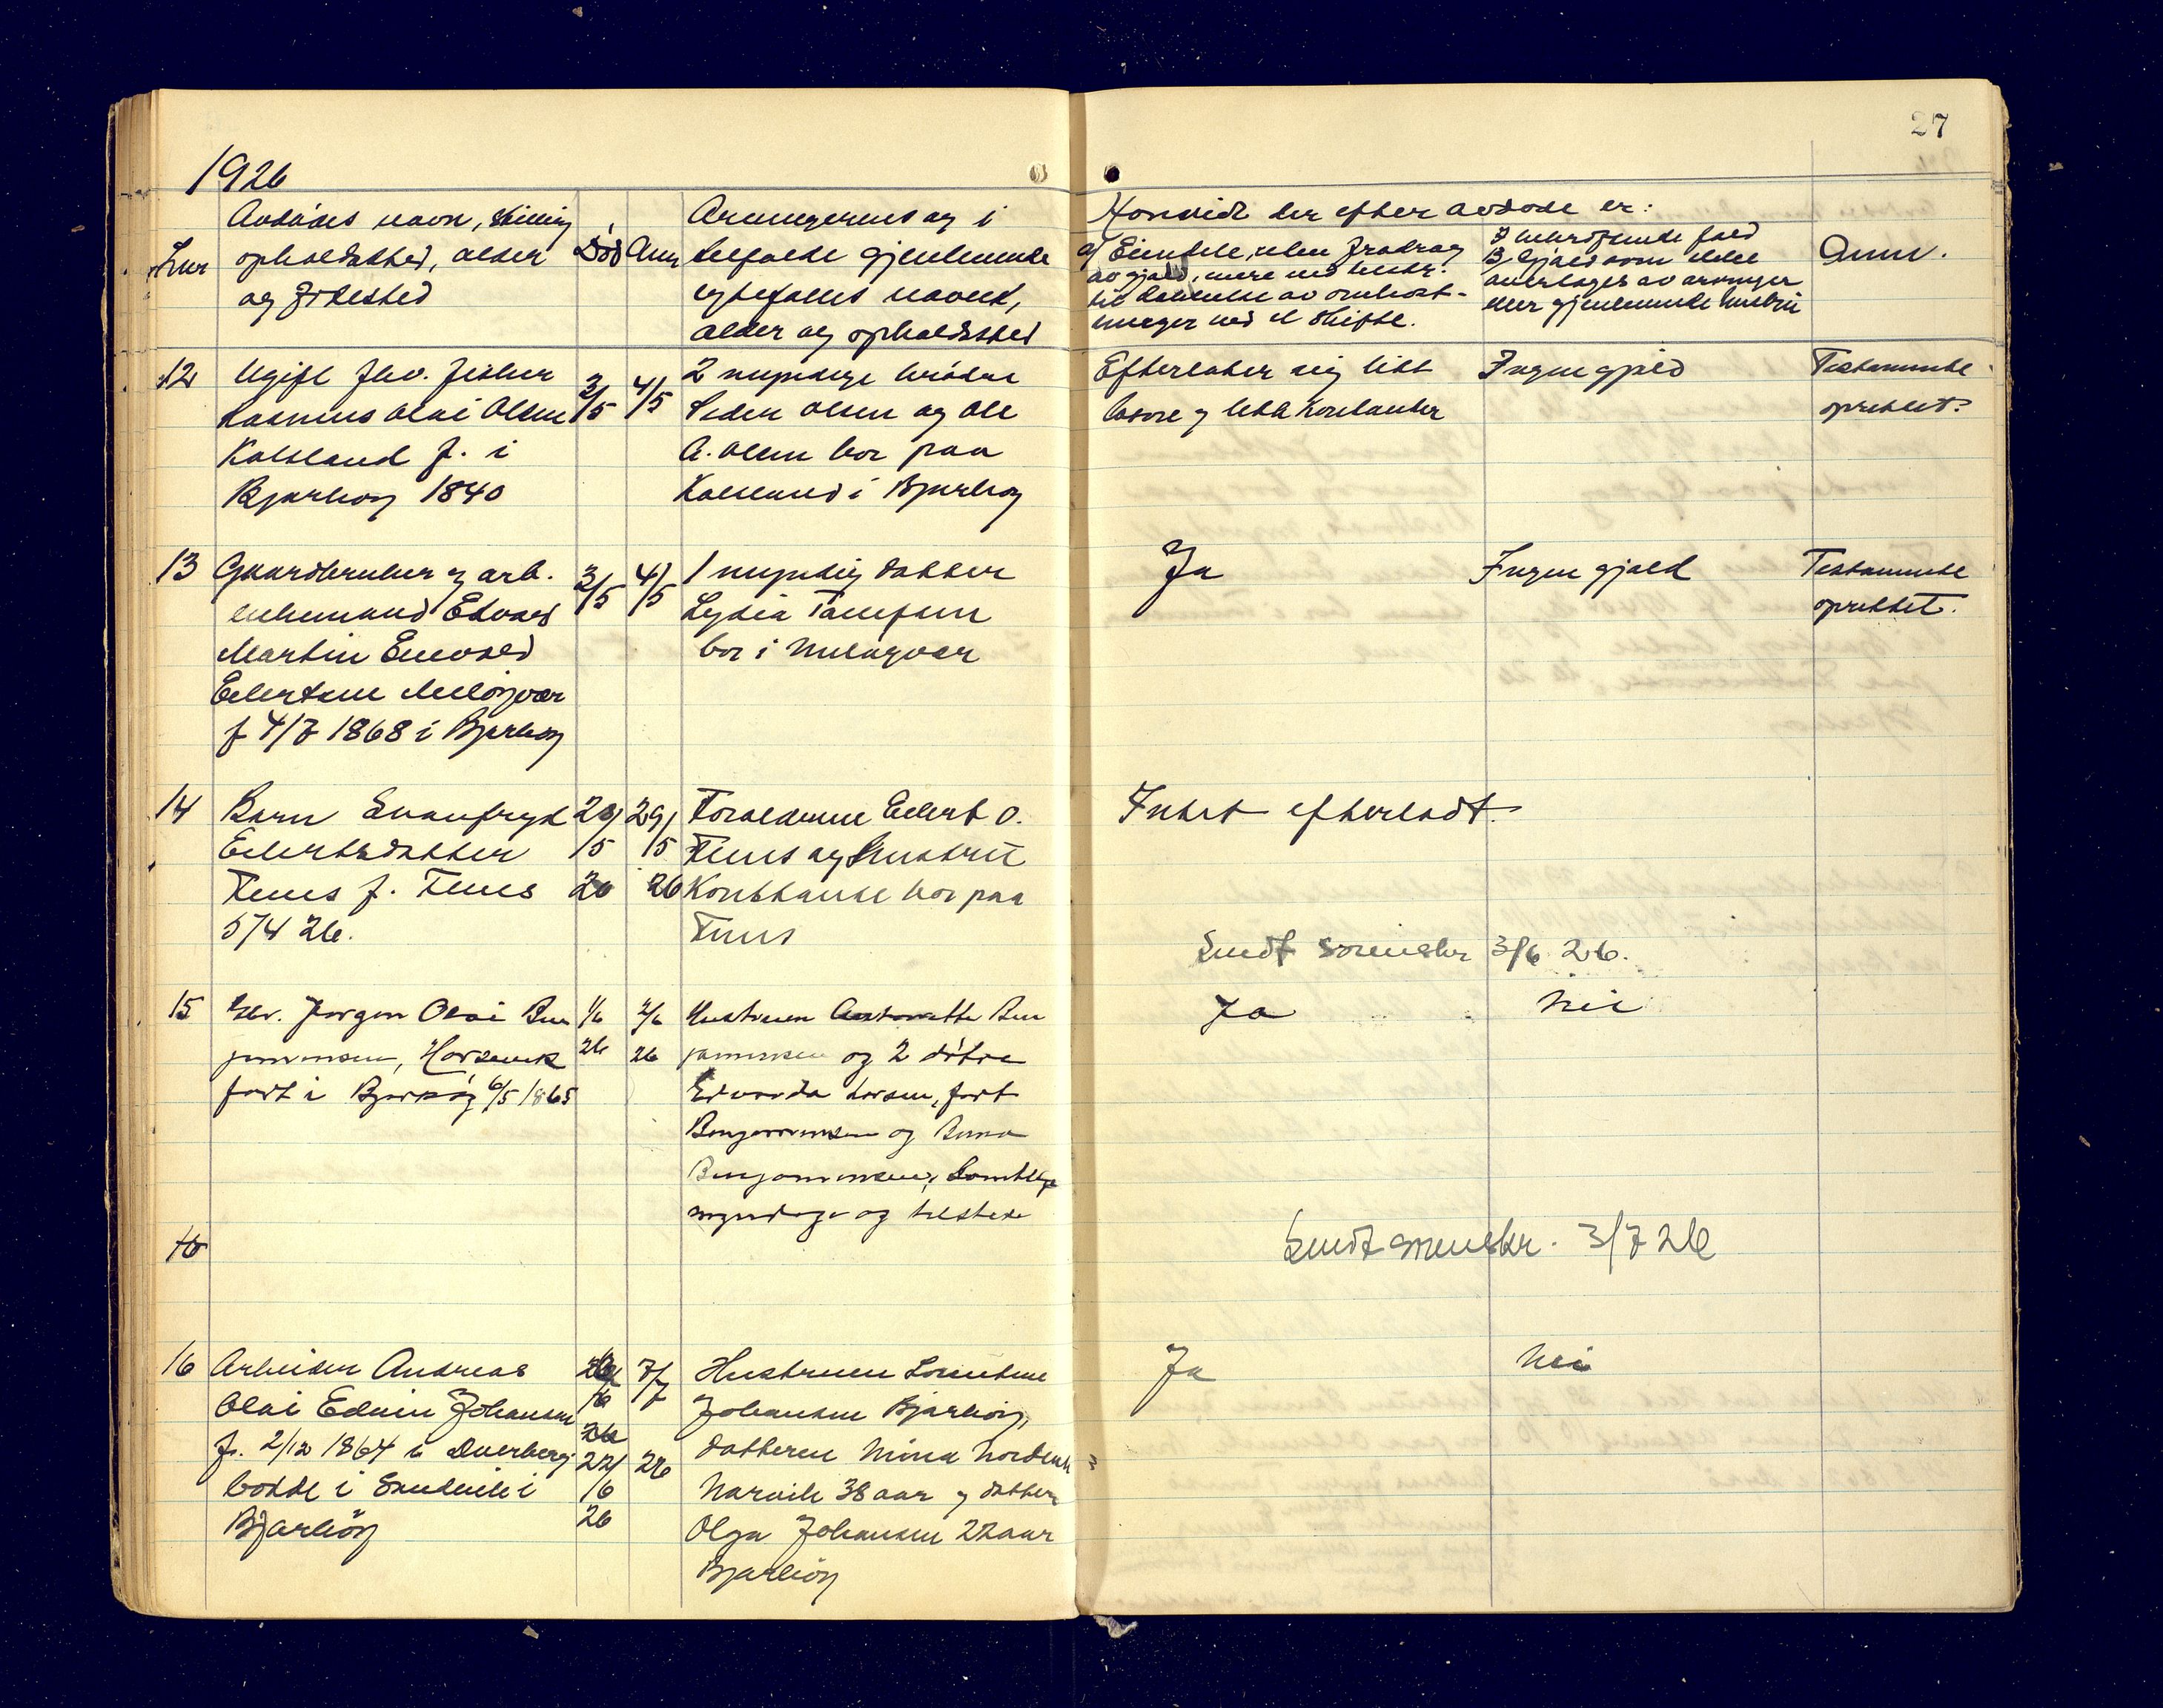 27
1926
Lnr
Avdødes navn, stilling
opholdssted, alder
og fødested
Død
Anm
Arvingernes og i
tilfælde gjenlevende
egtefælles navn,
alder og opholdssted
Hvorvidt der efter avdøde er:
a/ Eiendele, uten fradrag
av gjæld, mere end
til dækkelse av omkost-
ninger ved et skifte.
I bekræftende fald
B. Gjæld som ikke
overtages av arvinger
eller gjenlevende hustru
Anm.
12
Ugift fhv. fisker
Rasmus Olai Olsen
Kalsland f. i
Bjarkøy 1840
3/5
4/5
2 myndige brødre
Peder Olsen og Ole
A. Olsen bor paa
Kalsland i Bjarkøy
Efterlater sig litt
løsøre og litt kontanter
Ingen gjæld
Testamente
oprettet.
13
Gaardbruker og arb.
Edvard
Martin Enevold
Eilertsen Meløyvær
f 4/7 1868 i Bjarkøy
3/5
4/5
1 myndig datter
Lydia
bor i Meløyvær
Ja
Ingen gjæld
Testamente
oprettet.
14
Barn Svanfryd
Eilertsdatter
Fenes f. Fenes
5/4 26.
28/
/5
26
29/
/5
26
Forældrene Eilert O.
Fenes og hustru
Konstanse bor paa
Fenes
Intet efterladt.
Sendt sorenskr 3/6 26.
15
Jørgen Olai Ben
jaminsen,
født i Bjarkøy 6/5 1865
1/6
26
2/6
26
Hustruen Antonette Ben
jaminsen og 2 døtre
Edvarda Larsen, født
Benjaminsen og Anna
Benjaminsen, Samtlige
myndige og tilstede
Ja
Nei
16
Sendt sorenskr. 3/7 26
16
Arbeider Andreas
Olai Edvin Johansen
f. 2/12 1864 i Dverberg
bodde i Sandvik i
Bjarkøy
26
22/
/6
26
7/
7
26
Hustruen
Johansen Bjarkøy,
datteren Mina
Narvik 38 aar og datter
Olga Johansen 22 aar
Bjarkøy
Ja
Nei